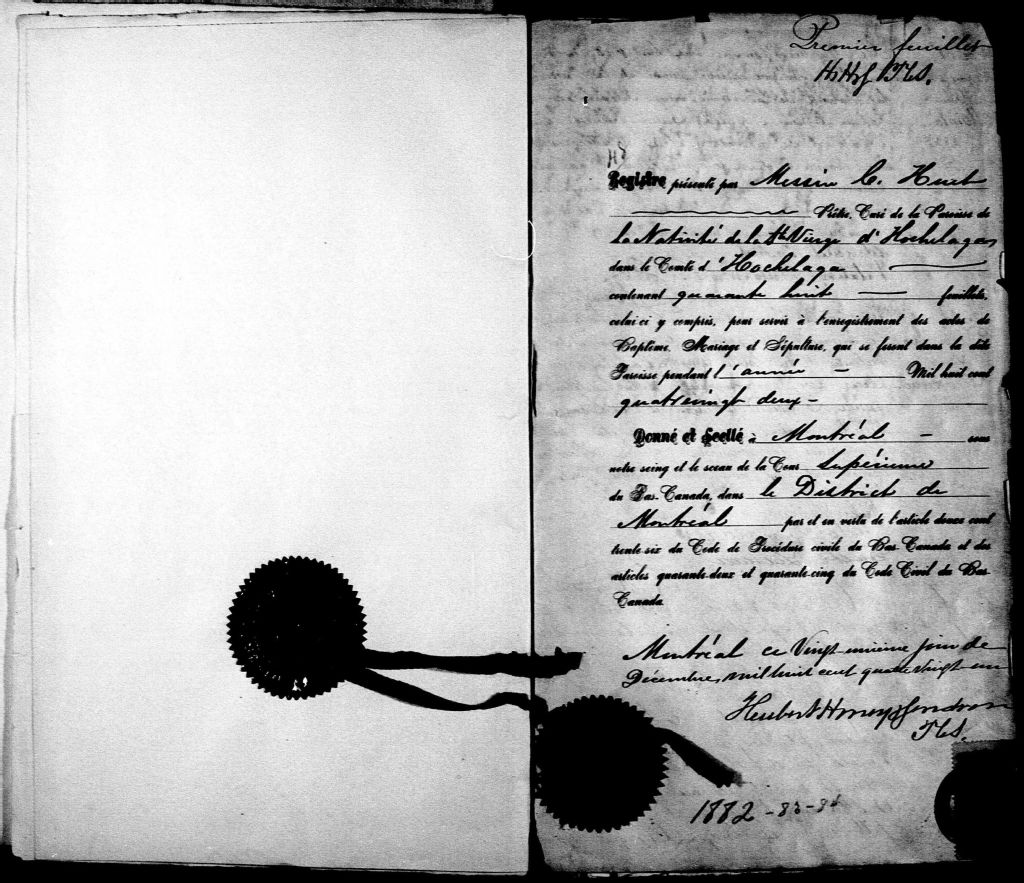 Premier feuillet
HHG
Registre présenté par Messire C. Huet
Prêtre, Curé de la Paroisse de
la Nativité de la Ste Vierge d'Hochelaga,
dans le Comté d'Hochelaga
contenant quarante huit feuillets,
celui-ci y compris, pour servir à l'enregistrement des actes de
Baptême, Mariage et Sépulture, qui se feront dans la dite
Paroisse pendant l'année Mil huit cent
quatrevingt deux -
Donné et Scellé à Montréal - sous
notre seing et le sceau de la Cour Supérieure
du Bas-Canada, dans le District de
Montréal par et en vertu de l'article douze cent
trente-six du Code de Procédure civile du Bas-Canada et des
articles quarante-deux et quarante-cinq du Code Civil du Bas-
Canada.
Montréal ce Vingt unième jour de
Décembre, mil huit cent quatrevingt un
Hubert Gendron
1882 - 83 - 84